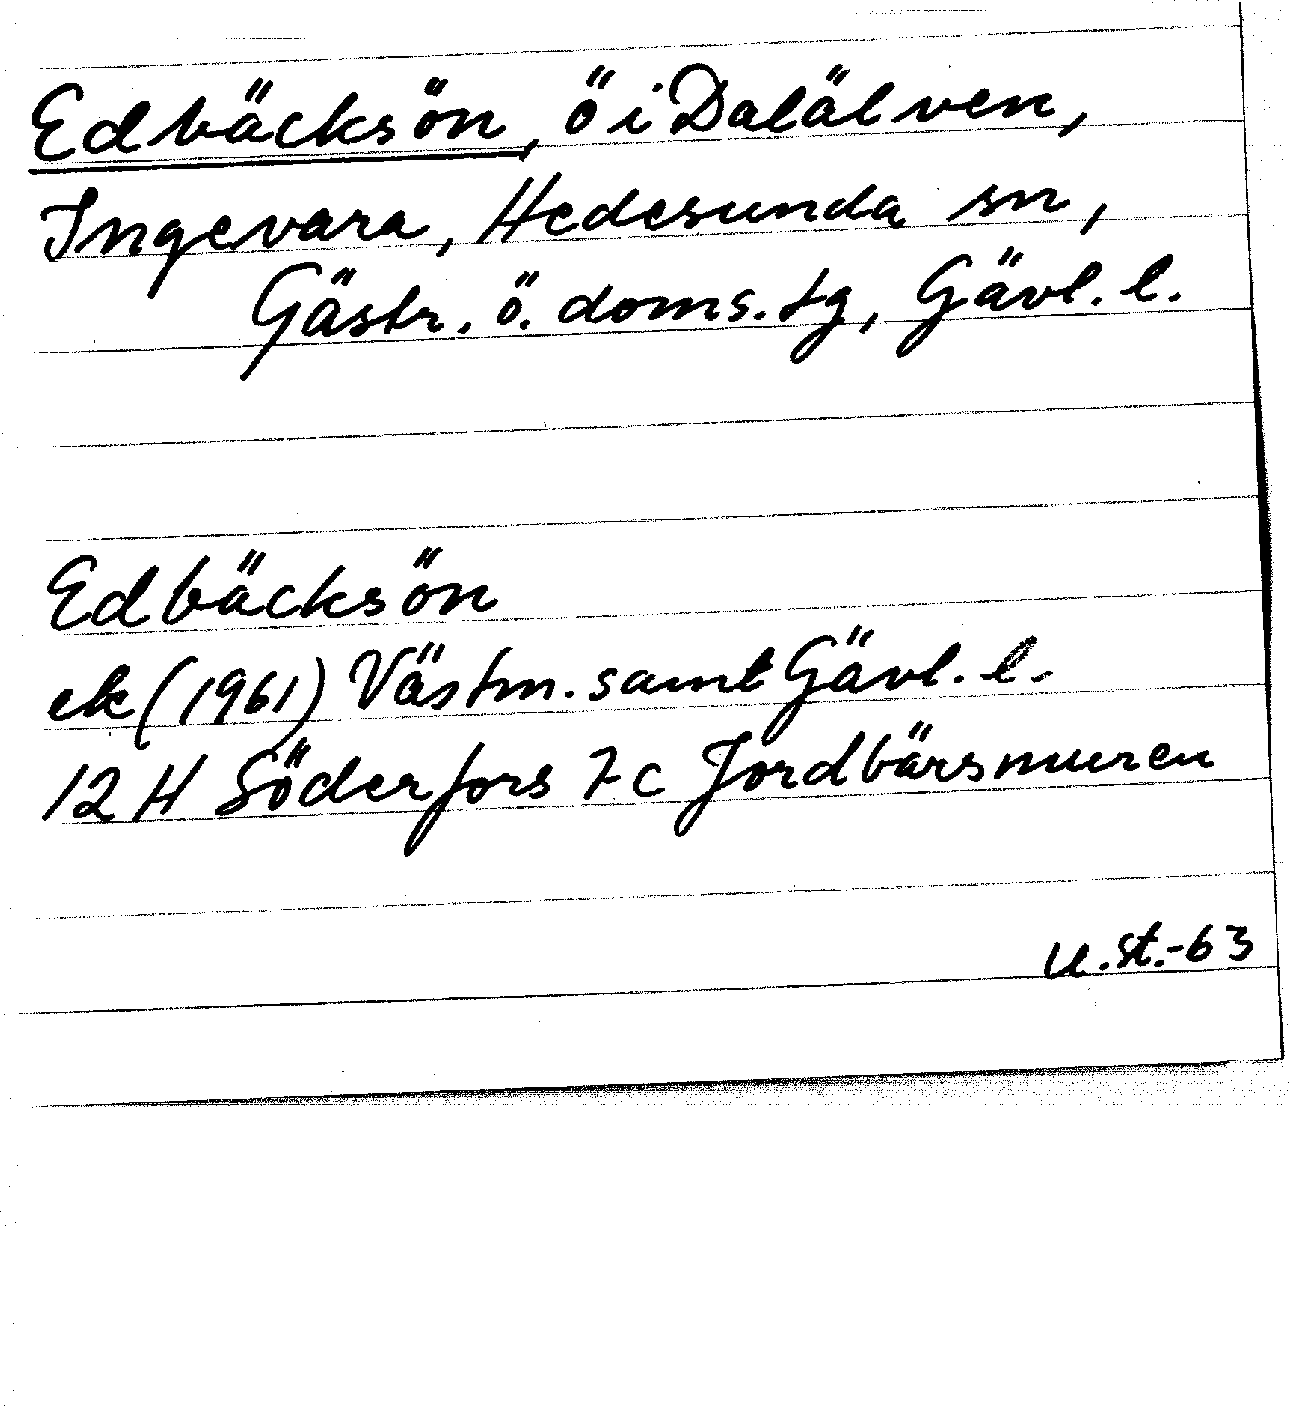 Edbäcksön, ö i Dalälven,
Ingevara, Hedesunda sn,
Gästr. ö. doms. tg, Gävl. l.
Edbäcksön
ek (1961) Västm. samt Gävl. l.
12 H Söderfors 7 c Jordbärsmuren
U. St. -63